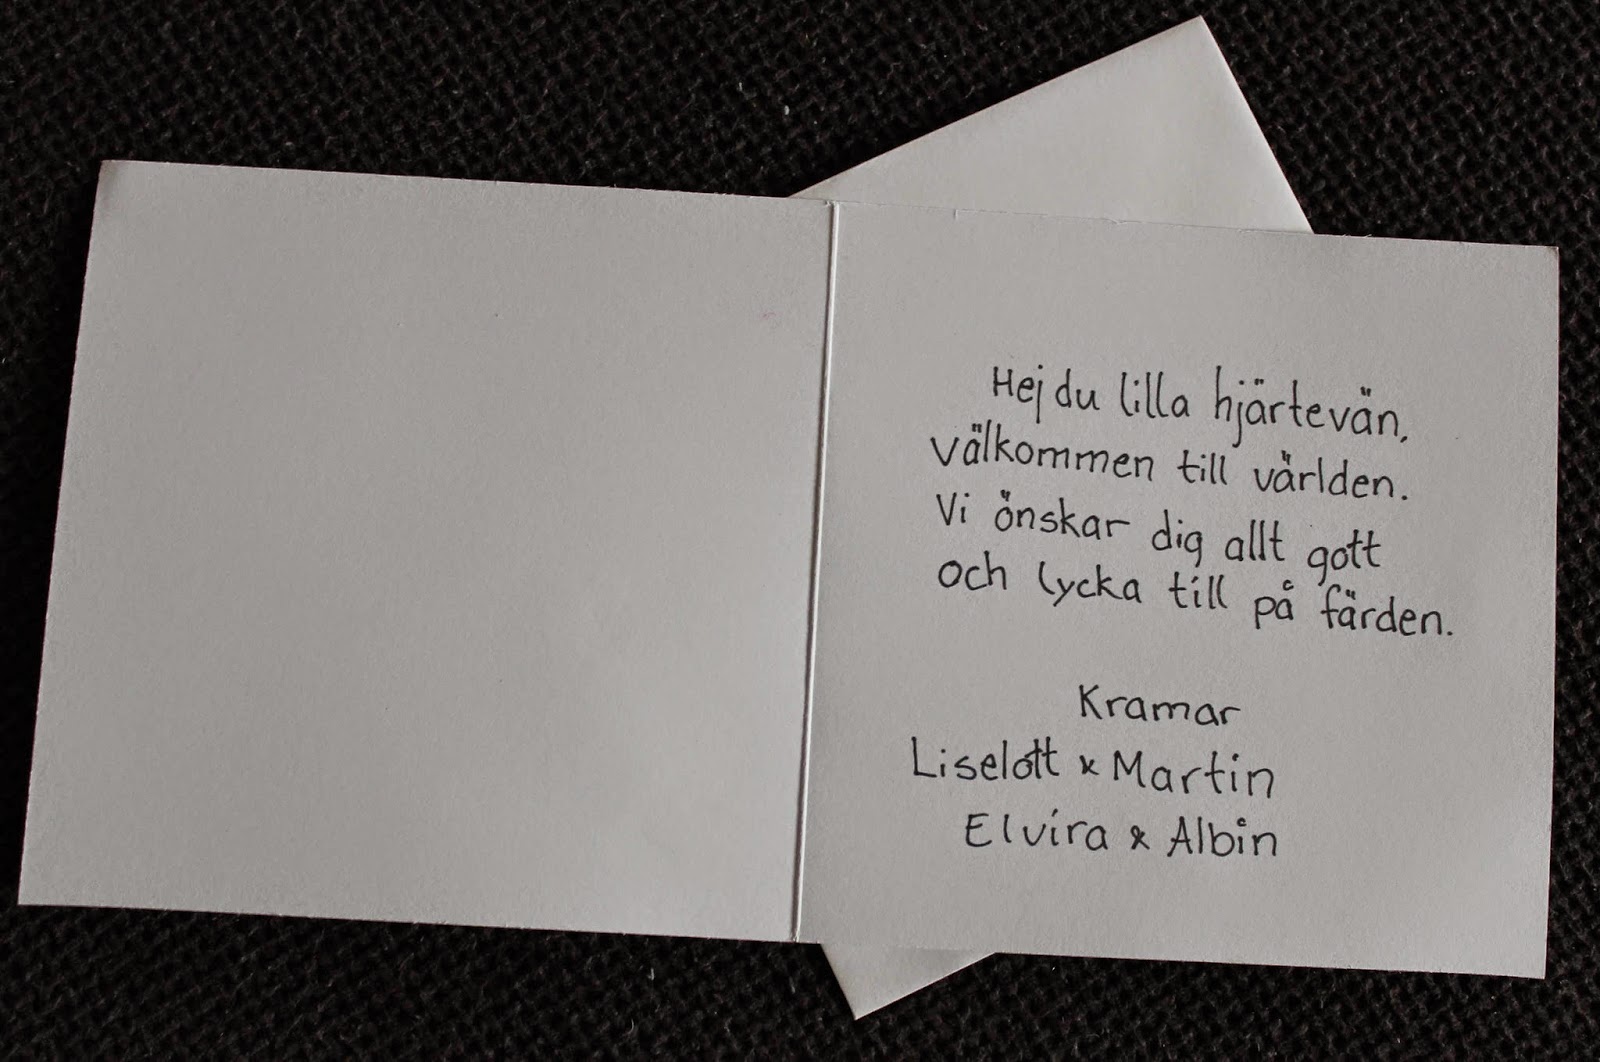 Hej du lilla hjärtevän,
välkommen till världen.
Vi önskar dig allt gott
och lycka till på färden.
Kramar
Liselott & Martin
Elvira & Albin